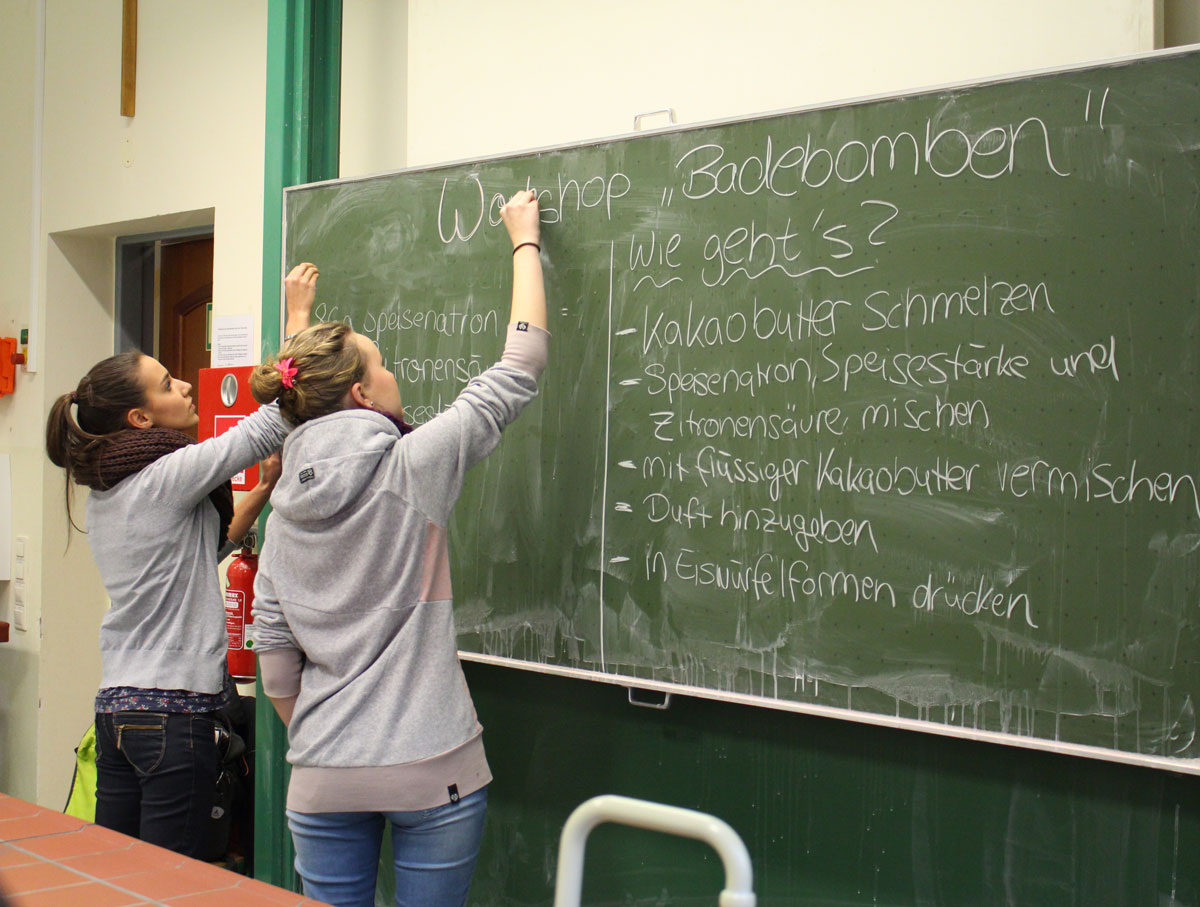 Workshop „Badebomben"
Speisenatron =
wie geht's?
- Kakaobutter schmelzen
- Speisenatron, Speisestärke und
Zitronensäure mischen
- mit flüssiger Kakaobutter vermischen
- Duft hinzugeben
- in Eiswürfelformen drücken